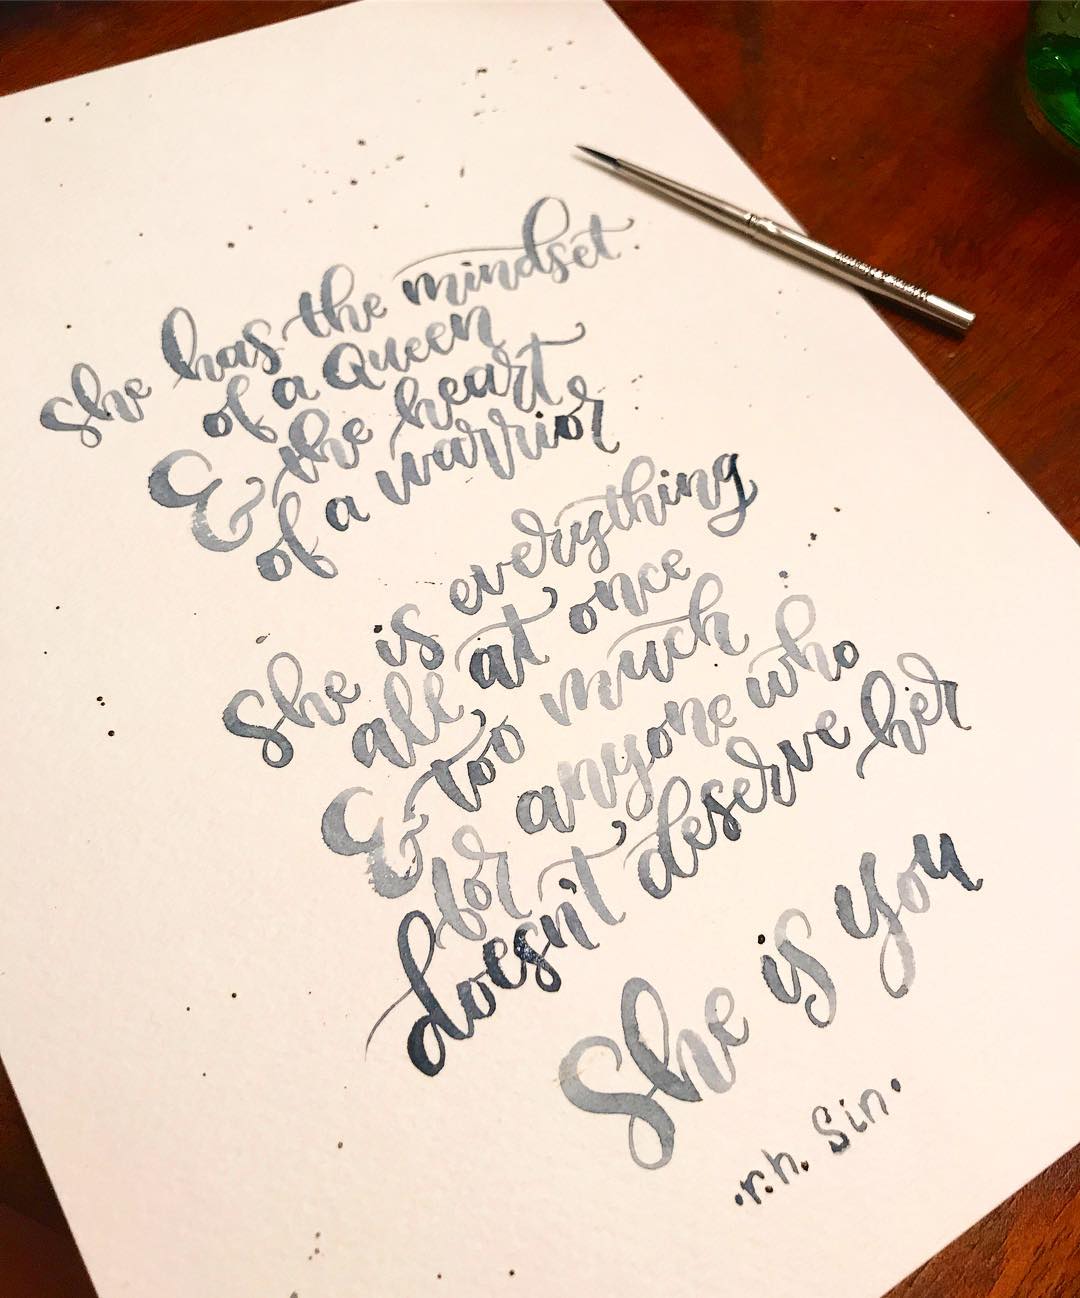 She has the mindset
of a Queen
& the heart
of a warrior
She is everything
all at once
& too much
for anyone who
doesn't deserve her
She is you
·r.h. Sin·